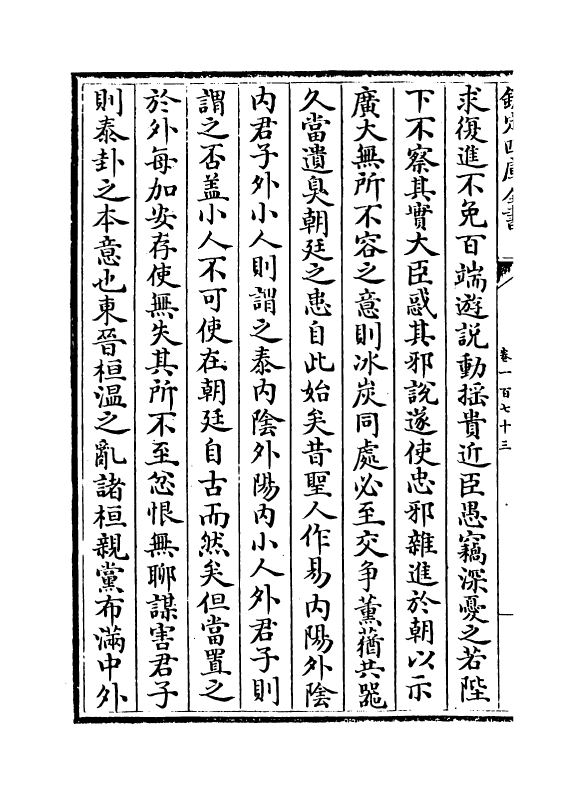 欽定四庫全書
卷一百七十三
求復進不免百端遊説動揺貴近臣愚竊深憂之若陛
下不察其實大臣惑其邪說遂使忠邪雜進於朝以示
廣大無所不容之意則冰炭同處必至交争薰蕕共器
久當遺臭朝廷之患自此始矣昔聖人作易内陽外陰
内君子外小人則謂之泰内陰外陽内小人外君子則
謂之否盖小人不可使在朝廷自古而然矣但當置之
於外每加安存使無失其所不至忿恨無聊謀害君子
則泰卦之本意也東晉桓温之亂諸桓親黨布滿中外